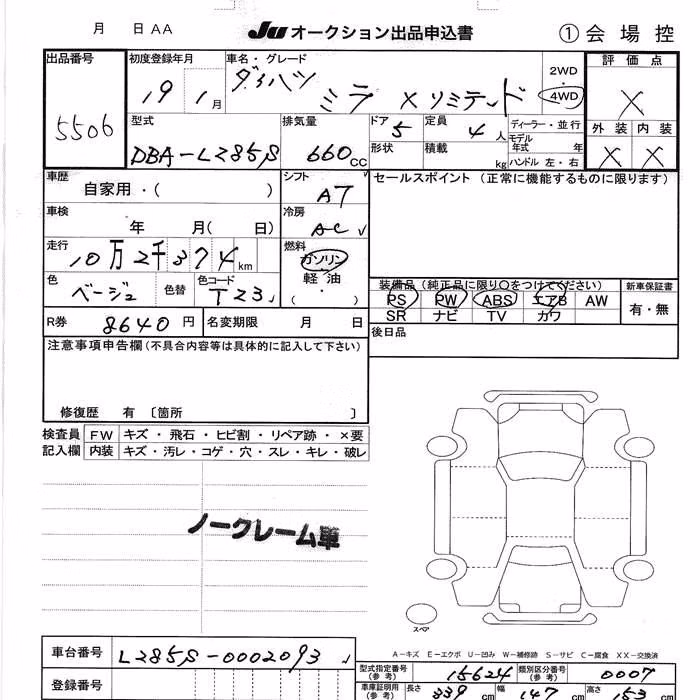 月 日 AA JU オークション出品申込書 ① 会 場 控
出品番号 初度登録年月 車名・グレード 評 価 点
5506 19年 1月 ダイハツ ミラ X リミテード 2WD ・ 4WD X
型式 排気量 ドア 定員 ディーラー・並行 外 装 内 装
DBA-L285S 660CC 5 4人 モデル年式 年 X X
形状 積載 kg ハンドル 左・右
車歴 シフト セールスポイント (正常に機能するものに限ります)
自家用・( ) AT
車検 冷房
年 月( 日) AC
走行 燃料
10万2千374km ガソリン
色 色替 色コード 軽 油
ベージュ T23 ・( )
装備品 (純正品に限り○をつけてください) 新車保証書
PS PW ABS エアB AW 有・無
SR ナビ TV カワ
R券 8640円 名変期限 月 日 後日品
注意事項申告欄 (不具合内容等は具体的に記入して下さい)
修復歴 有 〔箇所 〕
検査員 FW キズ・飛石・ヒビ割・リペア跡・×要
記入欄 内装 キズ・汚レ・コゲ・穴・スレ・キレ・破レ
ノークレーム車
スペア
A－キズ E－エクボ U－凹み W－補修跡 S－サビ C－腐食 XX－交換済
車台番号 L285S-0002093
型式指定番号(参考) 15624 類別区分番号(参考) 0007
登録番号
車庫証明用(参考) 長さ 339cm 幅 147cm 高さ 153cm